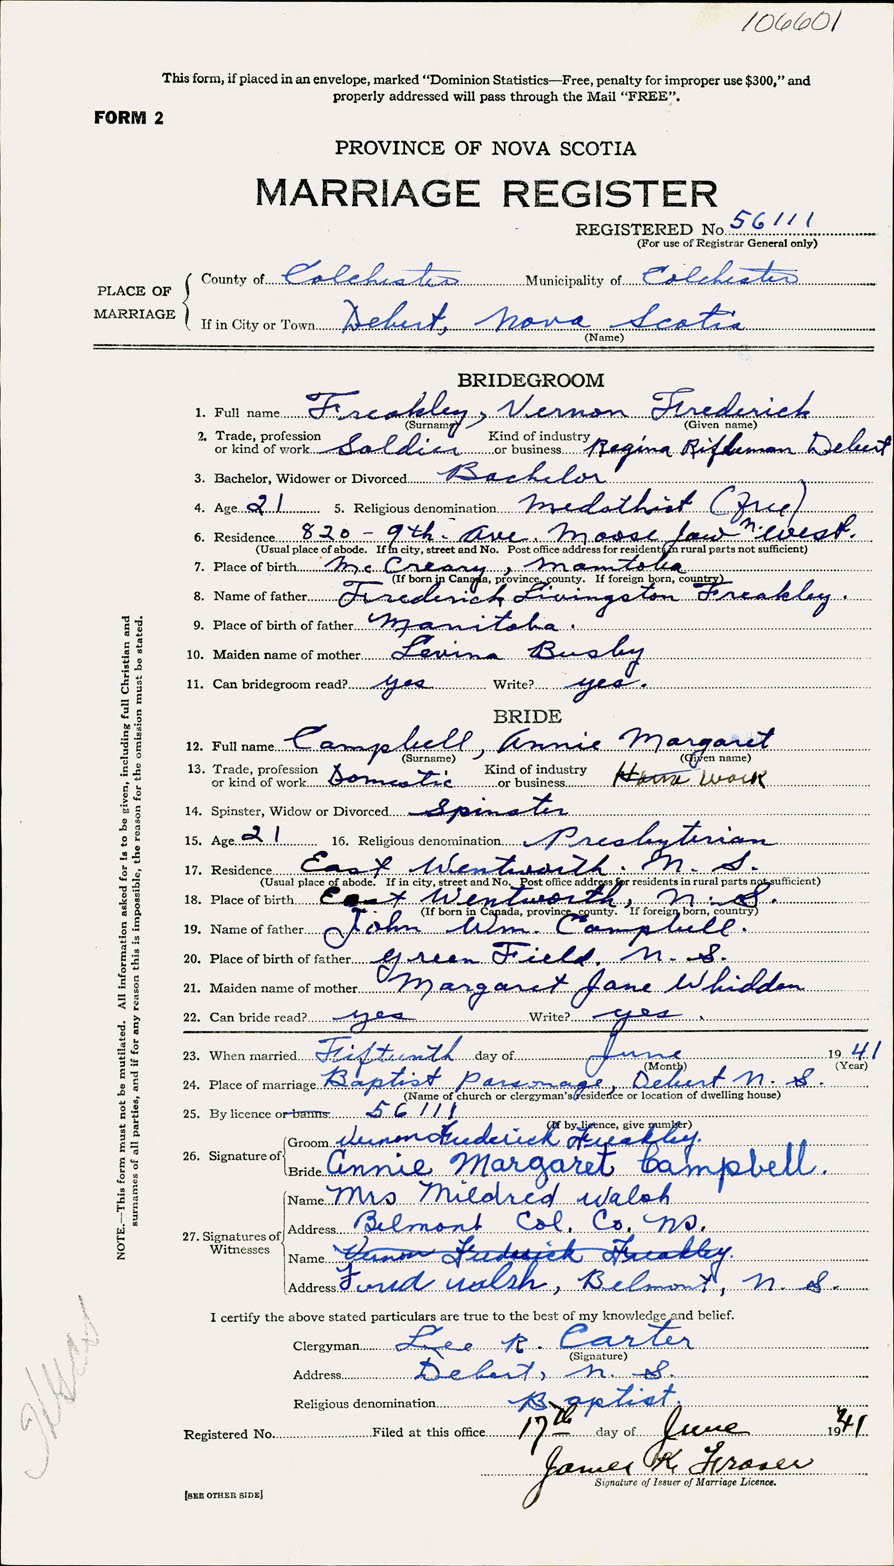 106601
This form, if placed in an envelope, marked "Dominion Statistics—Free, penalty for improper use $300," and
properly addressed will pass through the Mail "FREE".
FORM 2
PROVINCE OF NOVA SCOTIA
MARRIAGE REGISTER
REGISTERED No. 56111
(For use of Registrar General only)
PLACE OF MARRIAGE
County of Colchester Municipality of Colchester
If in City or Town Debert, Nova Scotia
(Name)
BRIDEGROOM
1. Full name Freakley, Vernon Frederick
(Surname) (Given name)
2. Trade, profession or kind of work Soldier Kind of industry or business Regina Rifleman Debert
3. Bachelor, Widower or Divorced Bachelor
4. Age 21 5. Religious denomination Medothist (Free)
6. Residence 820 - 9th. Ave. Moose Jaw N. West.
(Usual place of abode. If in city, street and No. Post office address for residents in rural parts not sufficient)
7. Place of birth Mc Creary, Manitoba
(If born in Canada, province, county. If foreign born, country)
8. Name of father Frederick Livingston Freakley.
9. Place of birth of father Manitoba.
10. Maiden name of mother Levina Busby
11. Can bridegroom read? yes Write? yes.
BRIDE
12. Full name Campbell, Annie Margaret
(Surname) (Given name)
13. Trade, profession or kind of work Domestic Kind of industry or business House work
14. Spinster, Widow or Divorced Spinster
15. Age 21 16. Religious denomination Presbyterian
17. Residence East Wentworth. N. S.
(Usual place of abode. If in city, street and No. Post office address for residents in rural parts not sufficient)
18. Place of birth East Wentworth, N. S.
(If born in Canada, province, county. If foreign born, country)
19. Name of father John Wm. Campbell.
20. Place of birth of father Green Field, N. S.
21. Maiden name of mother Margaret Jane Whidden
22. Can bride read? yes Write? yes.
23. When married Fifteenth day of June 1941
(Month) (Year)
24. Place of marriage Baptist Parsonage, Debert N. S.
(Name of church or clergyman's residence or location of dwelling house)
25. By licence or banns 56111
(If by licence, give number)
26. Signature of
Groom Vernon Frederick Freakley.
Bride Annie Margaret Campbell.
27. Signatures of Witnesses
Name Mrs Mildred Walsh
Address Belmont Col. Co. NS.
Name Vernon Frederick Freakley.
Address Ford Walsh, Belmont, N. S.
I certify the above stated particulars are true to the best of my knowledge and belief.
Clergyman Lee R. Carter
(Signature)
Address Debert, N. S.
Religious denomination Baptist.
Registered No. Filed at this office 17th day of June 1941
James K. Fraser
Signature of Issuer of Marriage Licence.
[SEE OTHER SIDE]
NOTE.—This form must not be mutilated. All information asked for is to be given, including full Christian and
surnames of all parties, and if for any reason this is impossible, the reason for the omission must be stated.